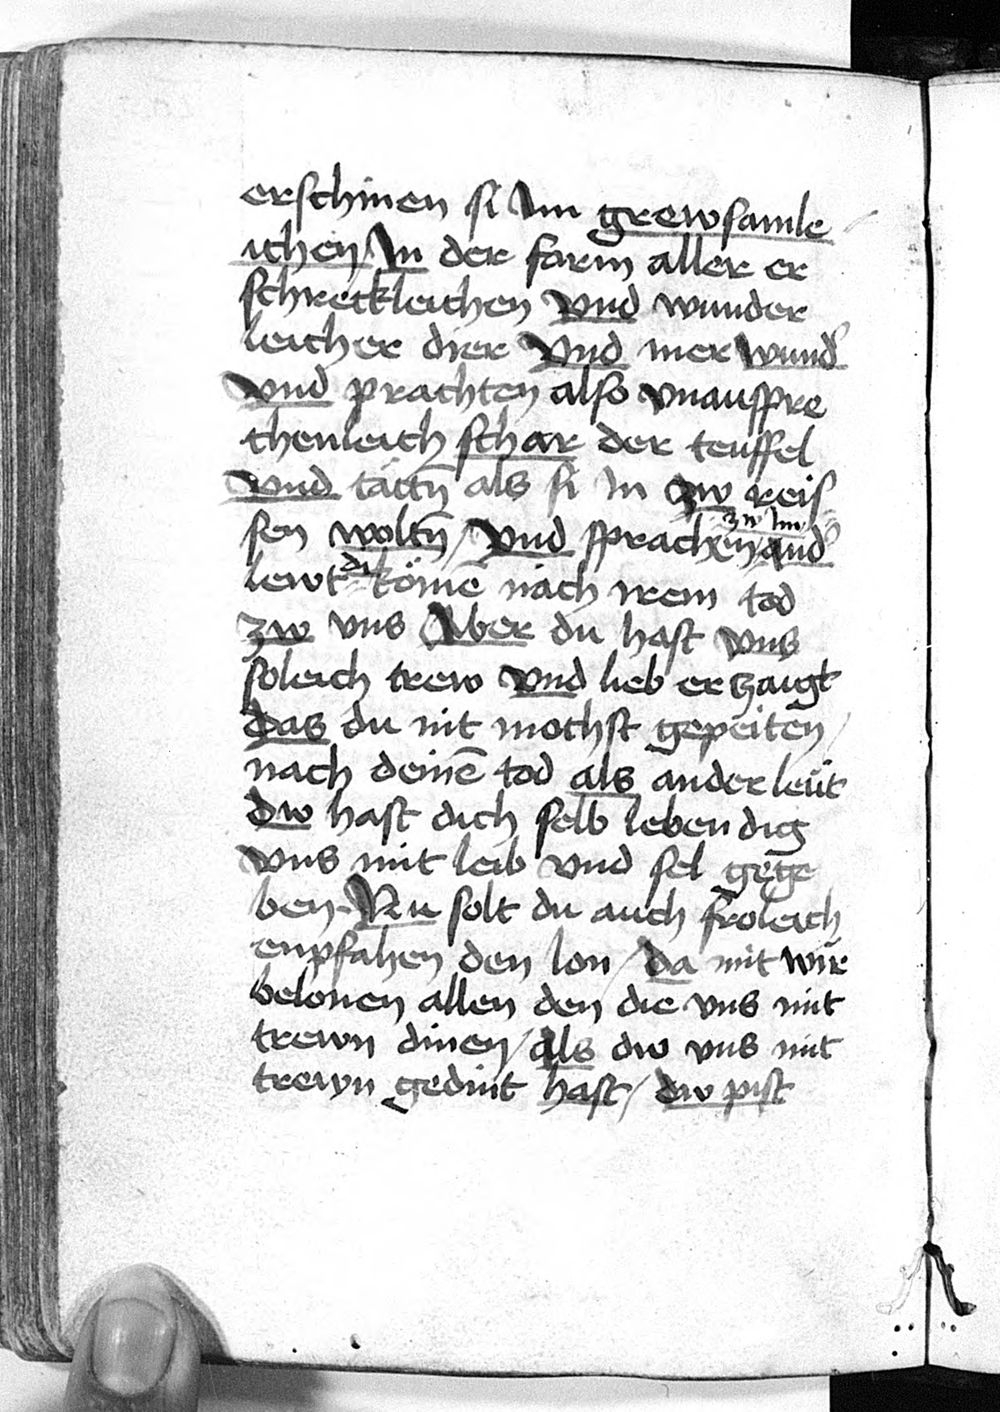 erschinen si Im grewsamle
ichen / In der farm aller er
schreckleichen vnd wunder
leicher dier Vnd mer wund᾽
vnd prachten also vnausspre
chenleich schar der teuffel
vnd tättn̄ als si In zw reis
sen woltn̄ / Vnd sprachen zw Im and᾽
lewt di kömē nach irem tod
zw vns Aber du hast vns
soleich trew vnd lieb erzaigt
das du nit mochst gepeiten /
nach deinē tod als ander leüt
dw hast dich selb lebendig
vns mit leib vnd sel gege
ben. Nu solt du auch froleich
enpfahen den lon / da mit wir
belonen allen den die vns mit
trewn dinen / als dw vns mit
trewn gedint hast / dw pist